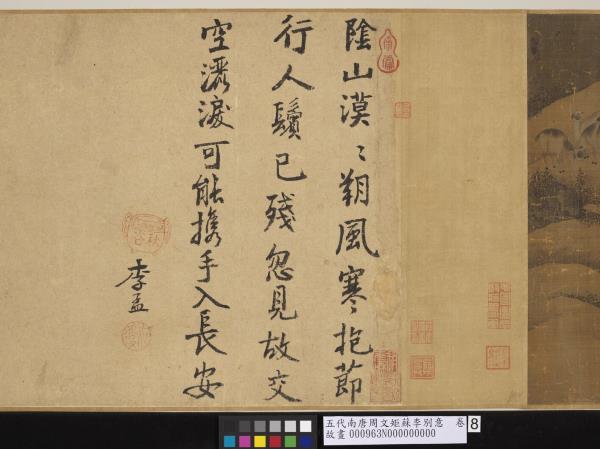 陰山漠〻朔風寒抱節
行人鬢已殘忽見故交
空灑淚可能攜手入長安
李孟
五代南唐周文矩蘇李別意 卷
故畫 000963N000000000
8